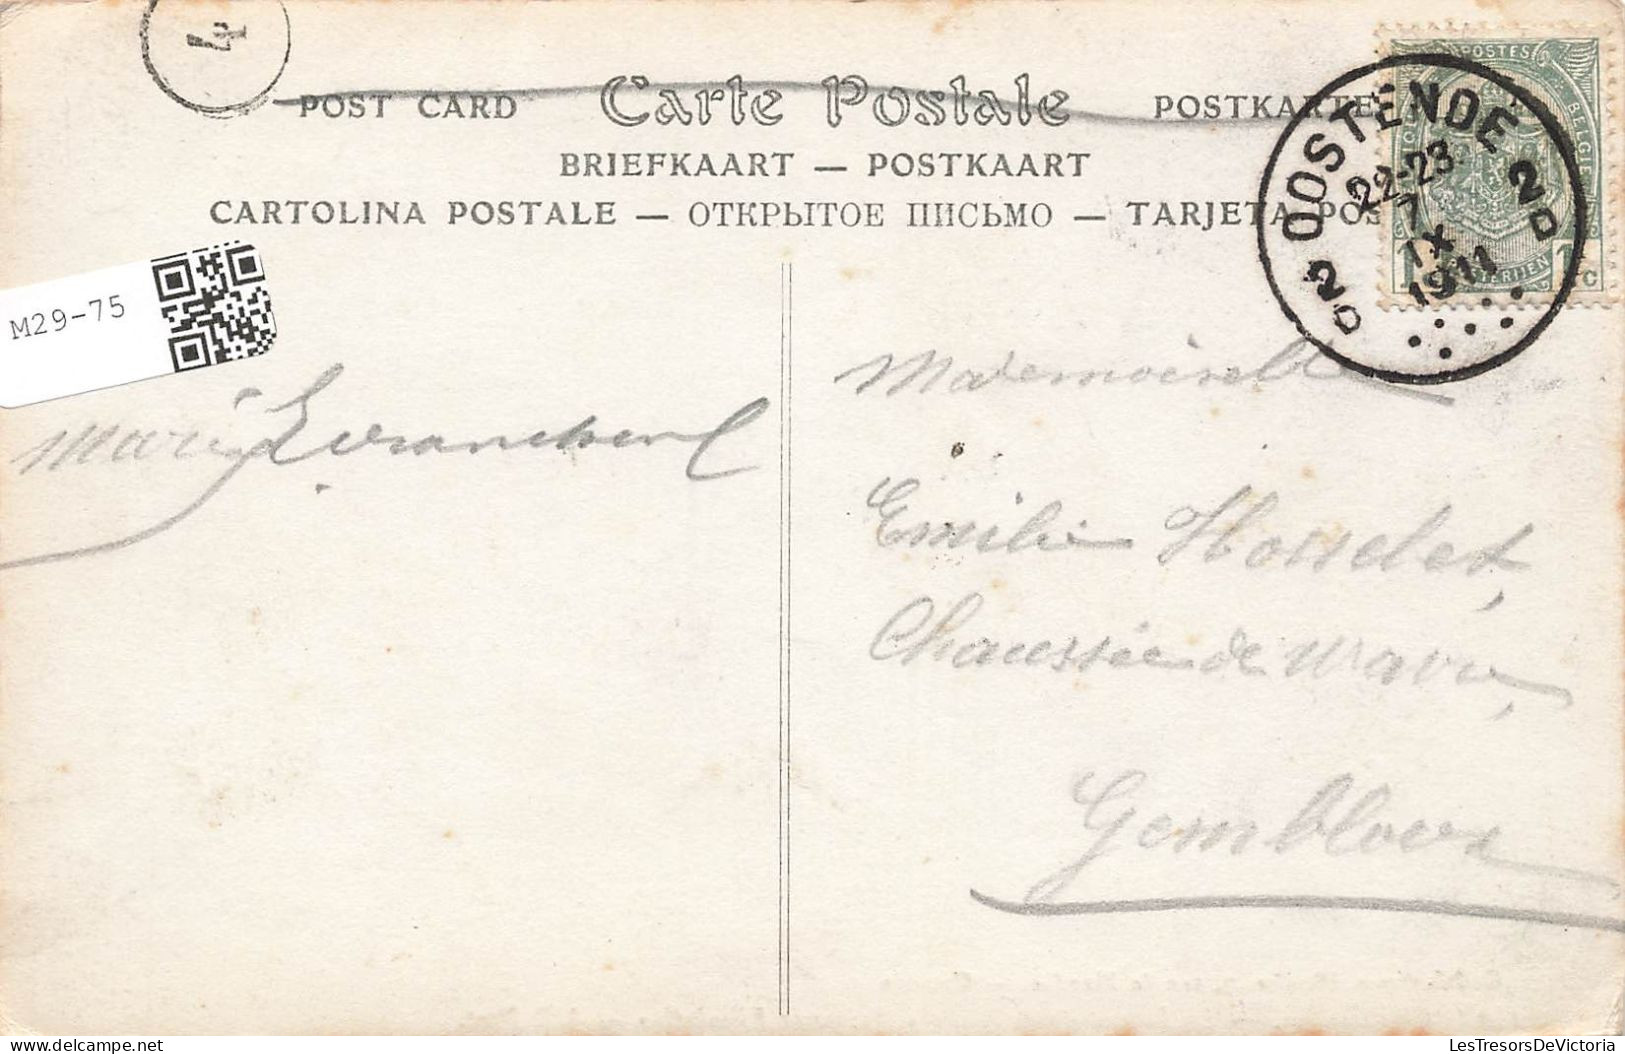 4
POST CARD Carte Postale POSTKARTE
BRIEFKAART — POSTKAART
CARTOLINA POSTALE — ОТКРЫТОЕ ПИСЬМО — TARJETA POS
POSTES
BELGIË
1 C
OOSTENDE
22-23
7
IX
1911
2D
2D
M29-75
Mademoiselle
Emilie Hosselet,
Chaussée de Wavre,
Gembloux
LesTresorsDeVictoria.com
LesTresorsDeVictoria